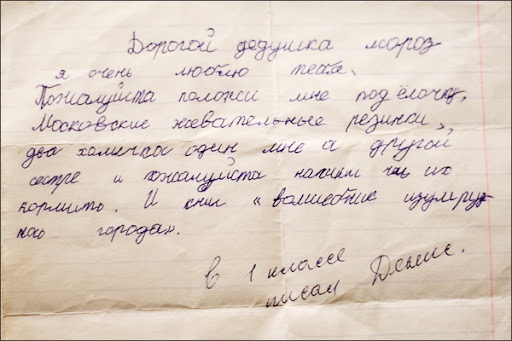 Дорогой дедушка мороз
я очень люблю тебя.
Пожалуйста положи мне под ёлочку,
Московские жевательные резинки
два хомячка один мне а другой
сестре и пожалуйста напиши чем их
кормить. И книг "волшебник изумруд
ного городах.
в 1 классе
писал Денис.